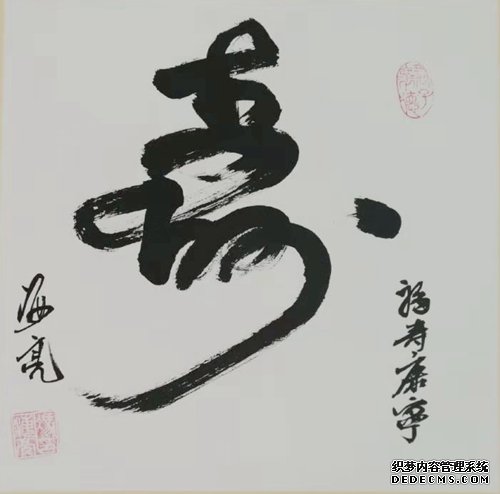 壽
福寿康宁
海亮
织梦内容管理系统
DEDECMS.COM